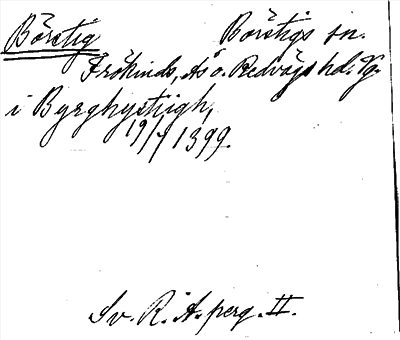 Börstig Börstigs sn.
Frökinds, Ås o. Redvägs hd. Vg.
i Byrghystiigh,
19/4 1399.
Sv. R. A. perg. II.